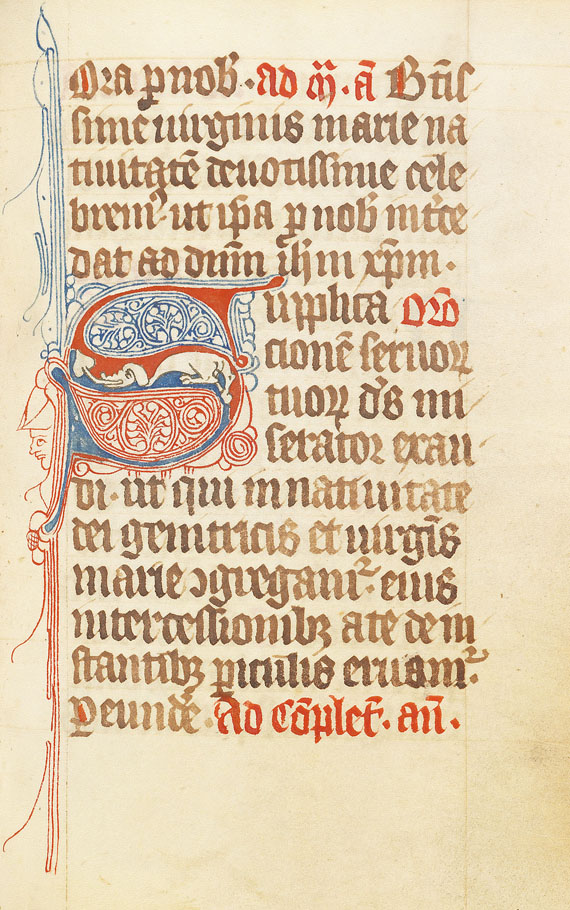 Ora ꝑ nob̄. ad m̄. ā Btīs
sime uirginis marie na
tiuitatē deuotissime cele
brem᷒. ut ip̄a ꝑ nob̄ int̄ce
dat ad dnm̄ ih̄m xp̄m.
Supplica Oro̅
cionē seruoꝝ
tuoꝝ d̄s mi
serator exau
di. ut qui in natiuitate
dei genitricis et uirgīs
marie ↄgregam᷒. eius
intercessionibꝫ a te de in
stantibꝫ ꝑiculis eruam᷒.
Ꝑ eundē. Ad Cōplet̄. an̄.